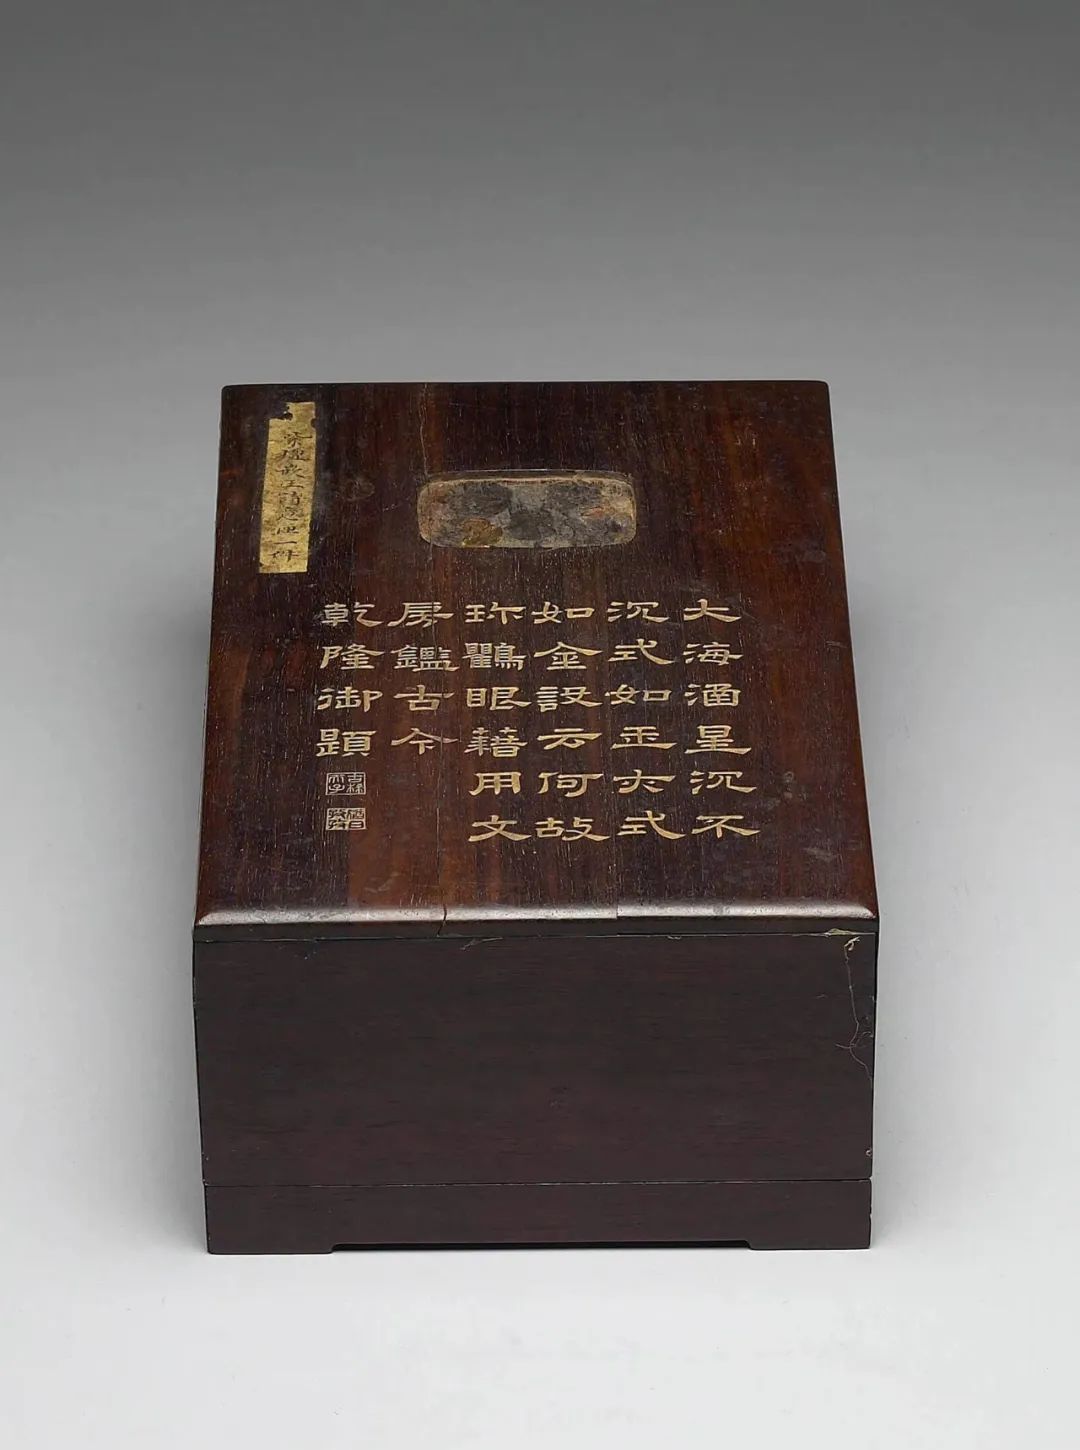 大海涵星沉不
沉式如玉亦式
如金設云何故
珎鸜眼藉用文
房鑑古今
乾隆御題
古稀天子
猶日孜孜